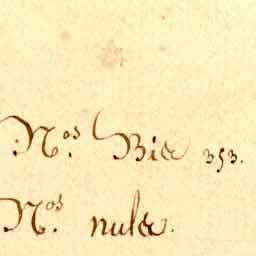 N.os Bis 353.
N.os nules.